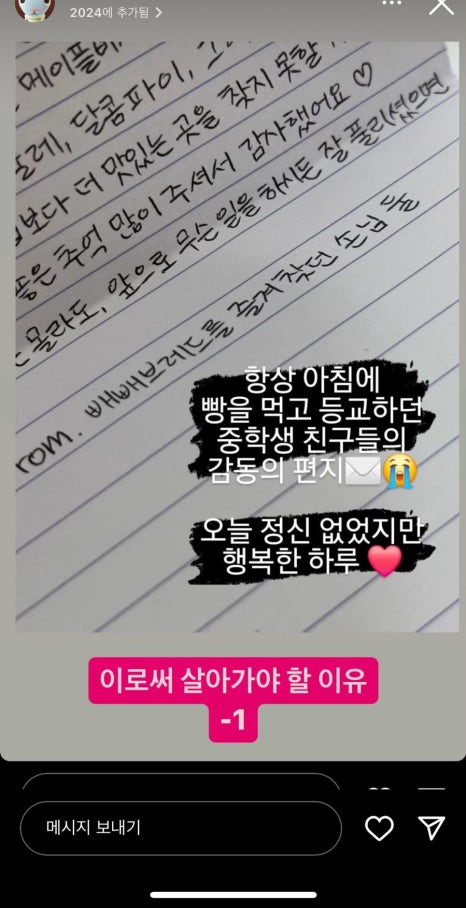 2024에 추가됨 >
메이플베
달콤파이,
보다 더 맛있는 곳을 찾지 못할
좋은 추억 많이 주셔서 감사했어요♡
몰라도, 앞으로 무슨 일을 하시든 잘 풀리셨으면
rom. 빼빼브레드를 즐겨찾던 손님 둘
항상 아침에
빵을 먹고 등교하던
중학생 친구들의
감동의 편지✉️😭
오늘 정신 없었지만
행복한 하루❤️
이로써 살아가야 할 이유
-1
메시지 보내기